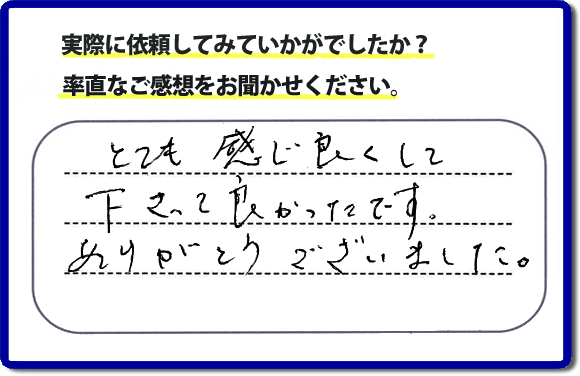 実際に依頼してみていかがでしたか？
率直なご感想をお聞かせください。
とても 感じ良くして
下さって良かったです。
ありがとう ございました。